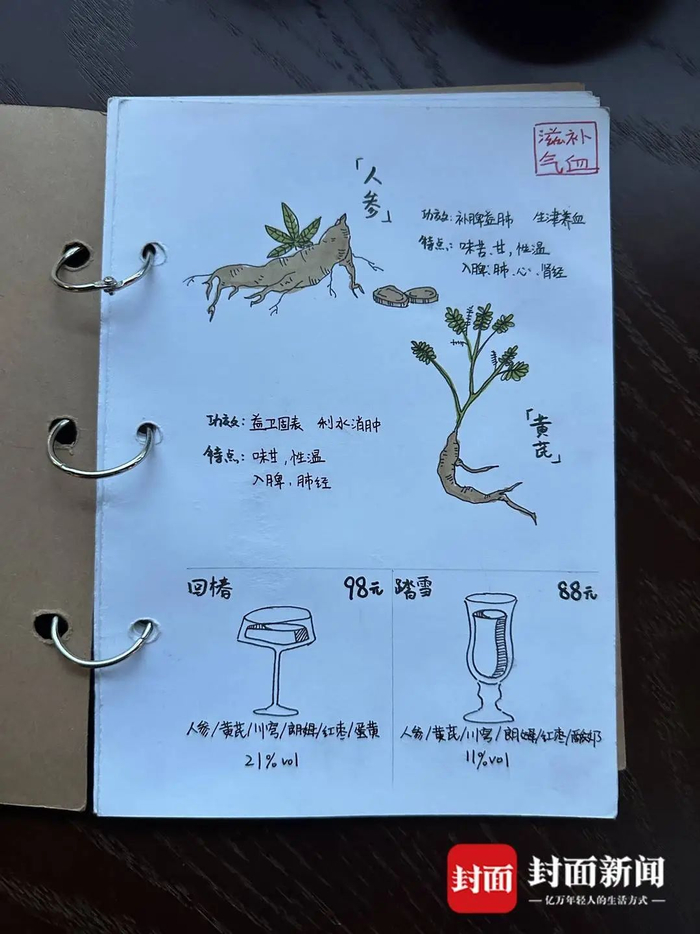 滋补
气血
「人参」
功效: 补脾益肺 生津养血
特点: 味苦、甘, 性温
入脾、肺、心、肾经
「黄芪」
功效: 益卫固表 利水消肿
特点: 味甘, 性温
入脾、肺经
回椿 98元
人参/黄芪/川穹/朗姆/红枣/蛋黄
21%vol
踏雪 88元
人参/黄芪/川穹/朗姆/红枣/酸奶
11%vol
封面 封面新闻
亿万年轻人的生活方式